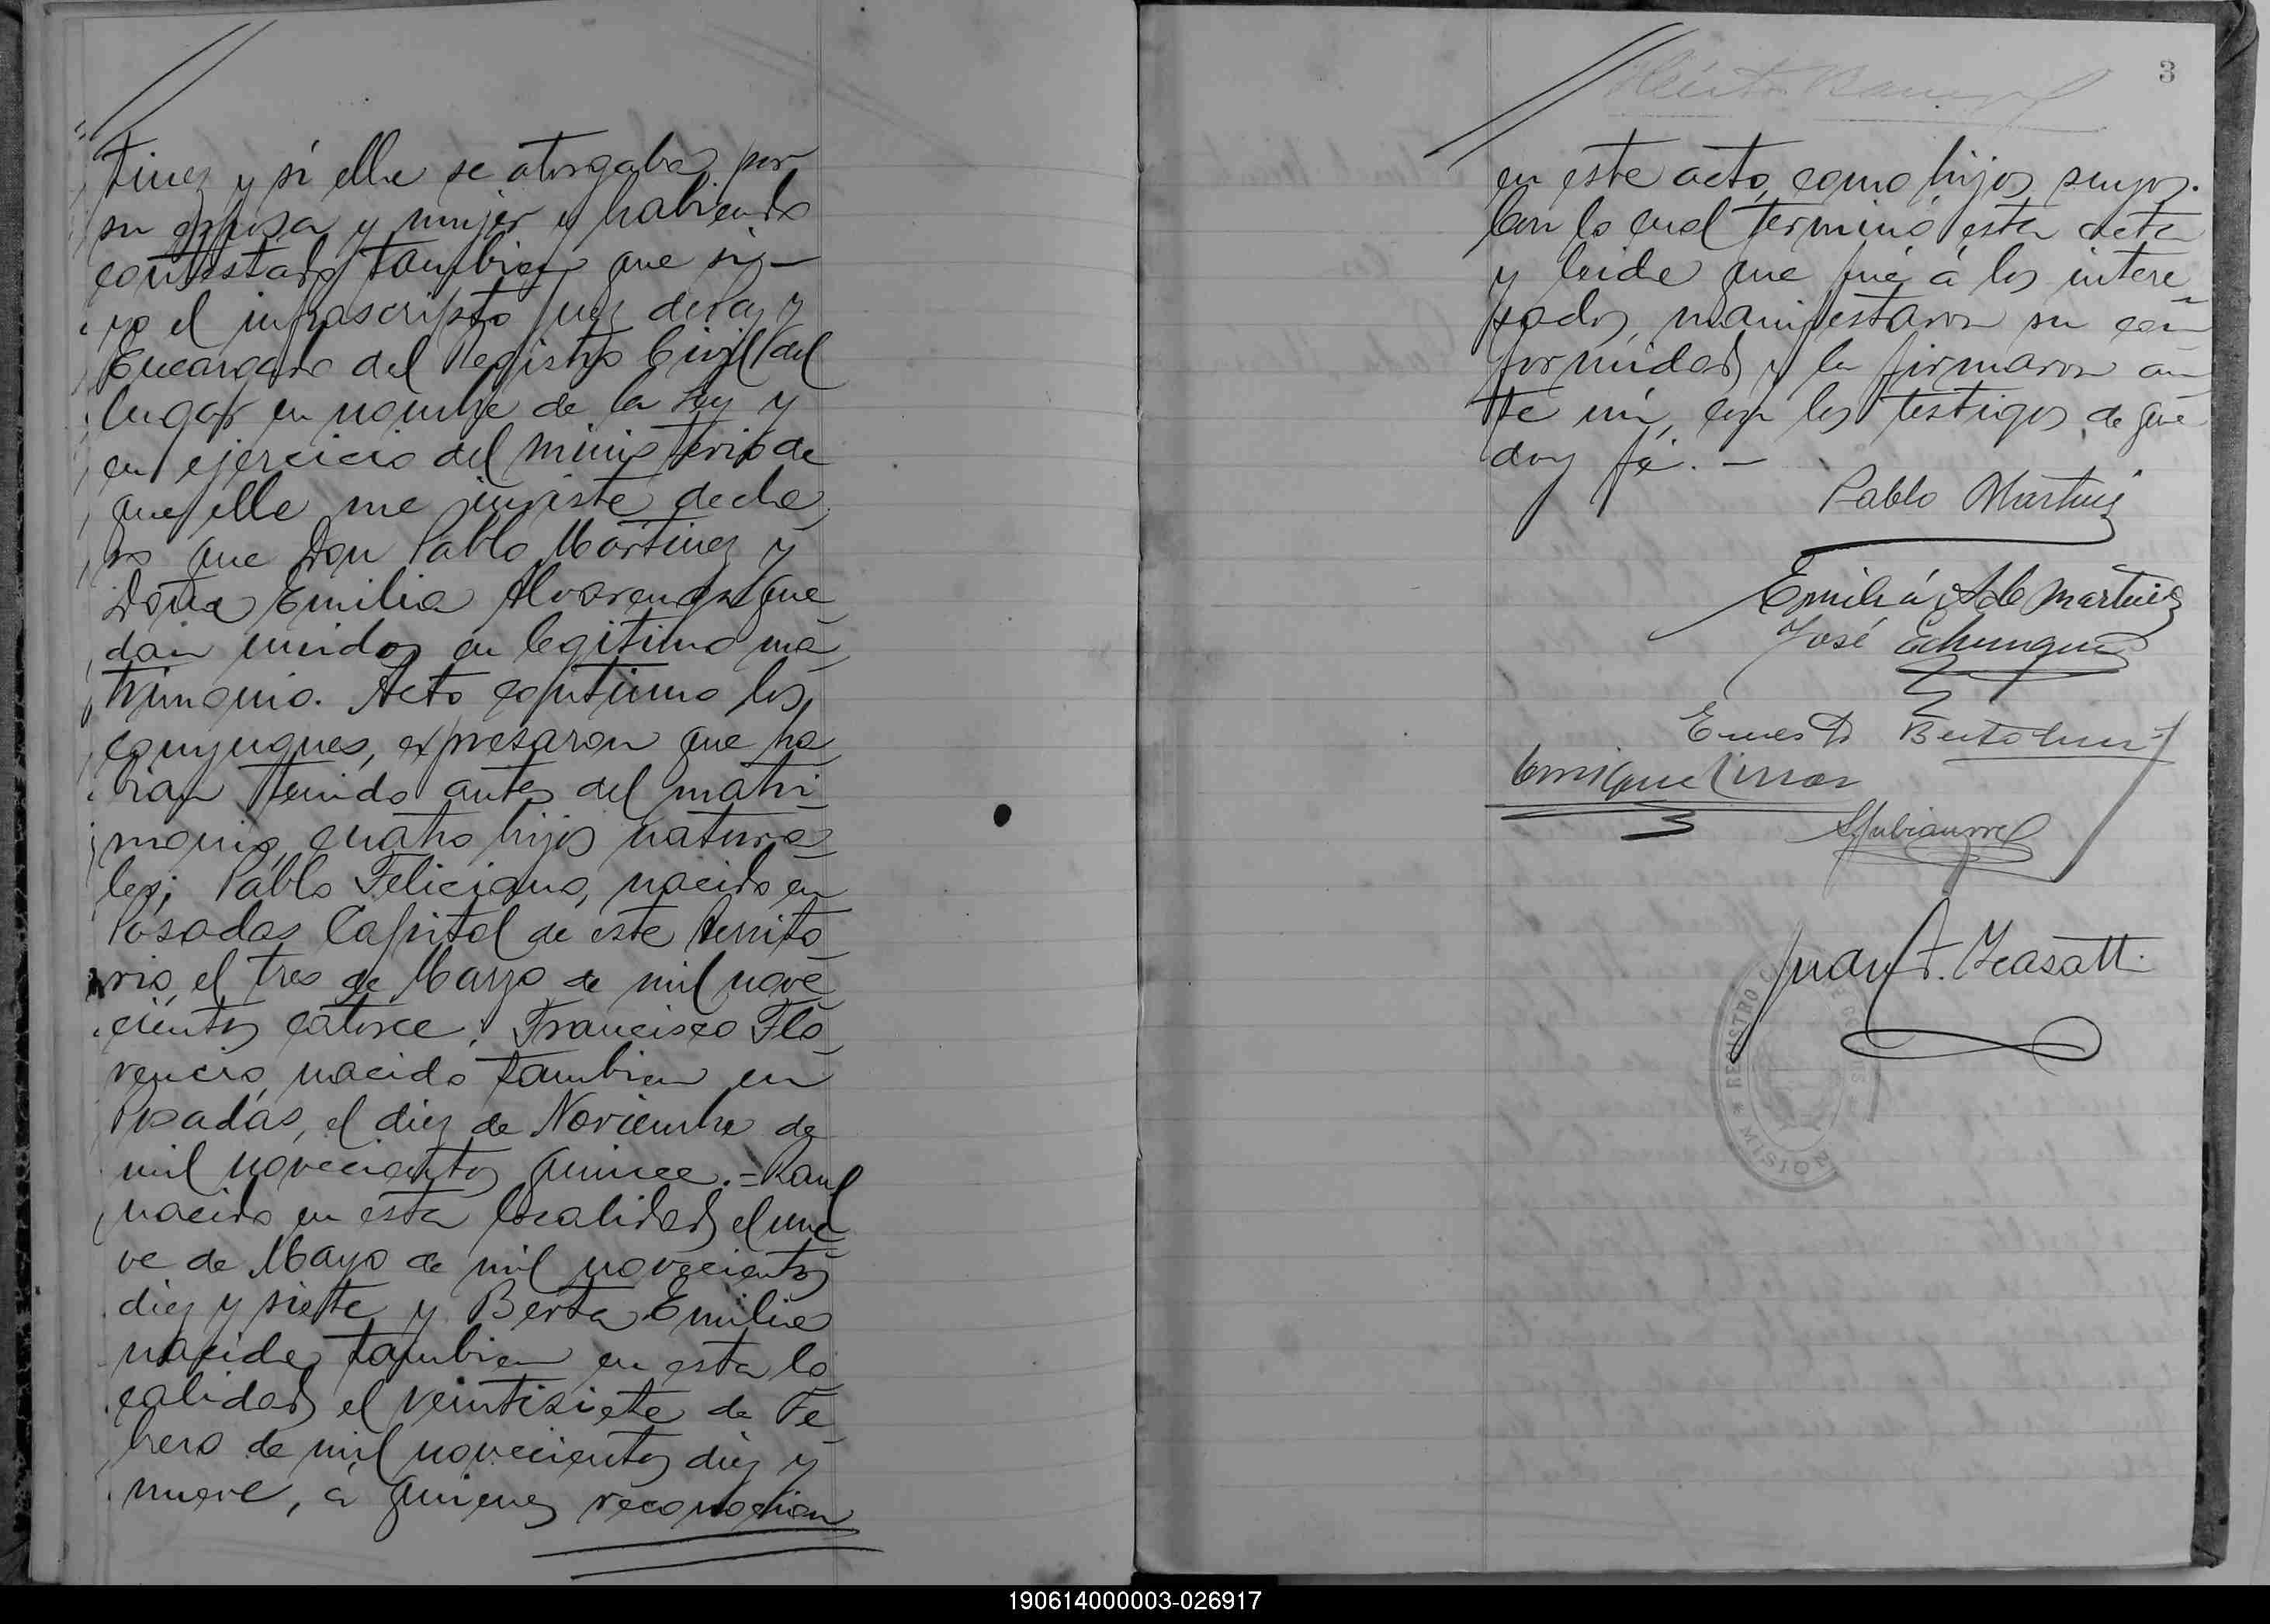 tinez y si ella se otorgaba por
su esposa y mujer y habiendo
contestado tambien que si —
yo el infrascripto Juez de Paz y
Encargado del Registro Civil del
lugar en nombre de la Ley y
en ejercicio del ministerio de
que ella me inviste decla
ro que Don Pablo Martinez y
Doña Emilia Alvarenga que
dan unidos en legitimo ma
trimonio. Acto continuo los
conyugues, expresaron que ha
bian tenido antes del matri
monio, cuatro hijos natura
les; Pablo Feliciano, nacido en
Posadas Capital de este territo
rio, el tres de Marzo de mil nove
cientos catorce. Francisco Flo
rencio, nacido tambien en
Posadas, el diez de Noviembre de
mil novecientos quince. = Raul
nacido en esta localidad el nue
ve de Mayo de mil novecientos
diez y siete y Berta Emilia
nacida tambien en esta lo
calidad el veintisiete de Fe
brero de mil novecientos diez y
nueve, á quienes reconocian
3
en este acto, como hijos suyos.
Con lo cual terminó esta acta
y leida que fué á los intere
sados, manifestaron su con
formidad y la firmaron an
te mí, con los testigos, de que
doy fé. —
Pablo Martinez
Emilia A de Martinez
José
Ernesto
Enrique
Juan
REGISTRO
MISIONES
190614000003-026917